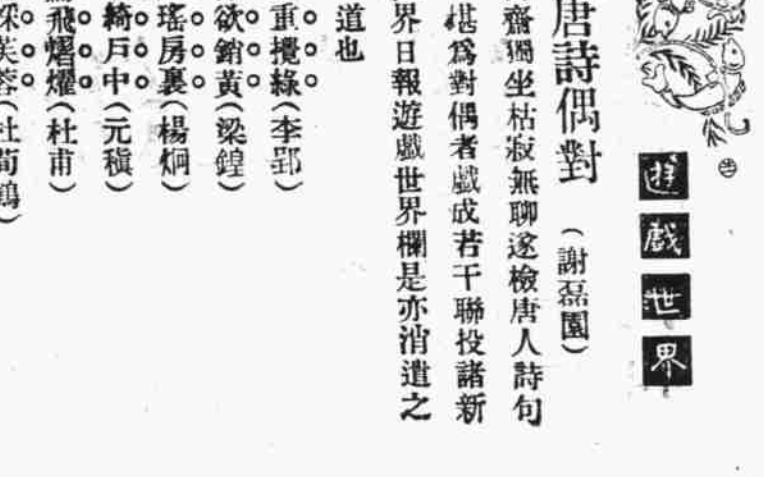 遊戲世界
唐詩偶對 (謝磊園)
齋獨坐枯寂無聊遂檢唐人詩句
堪爲對偶者戲成若干聯投諸新
界日報遊戲世界欄是亦消遣之
道也
重攪綠(李郢)
欲銷黃(梁鍠)
瑤房裏(楊炯)
綺戶中(元稹)
飛熠燿(杜甫)
採芙蓉(杜荀鶴)